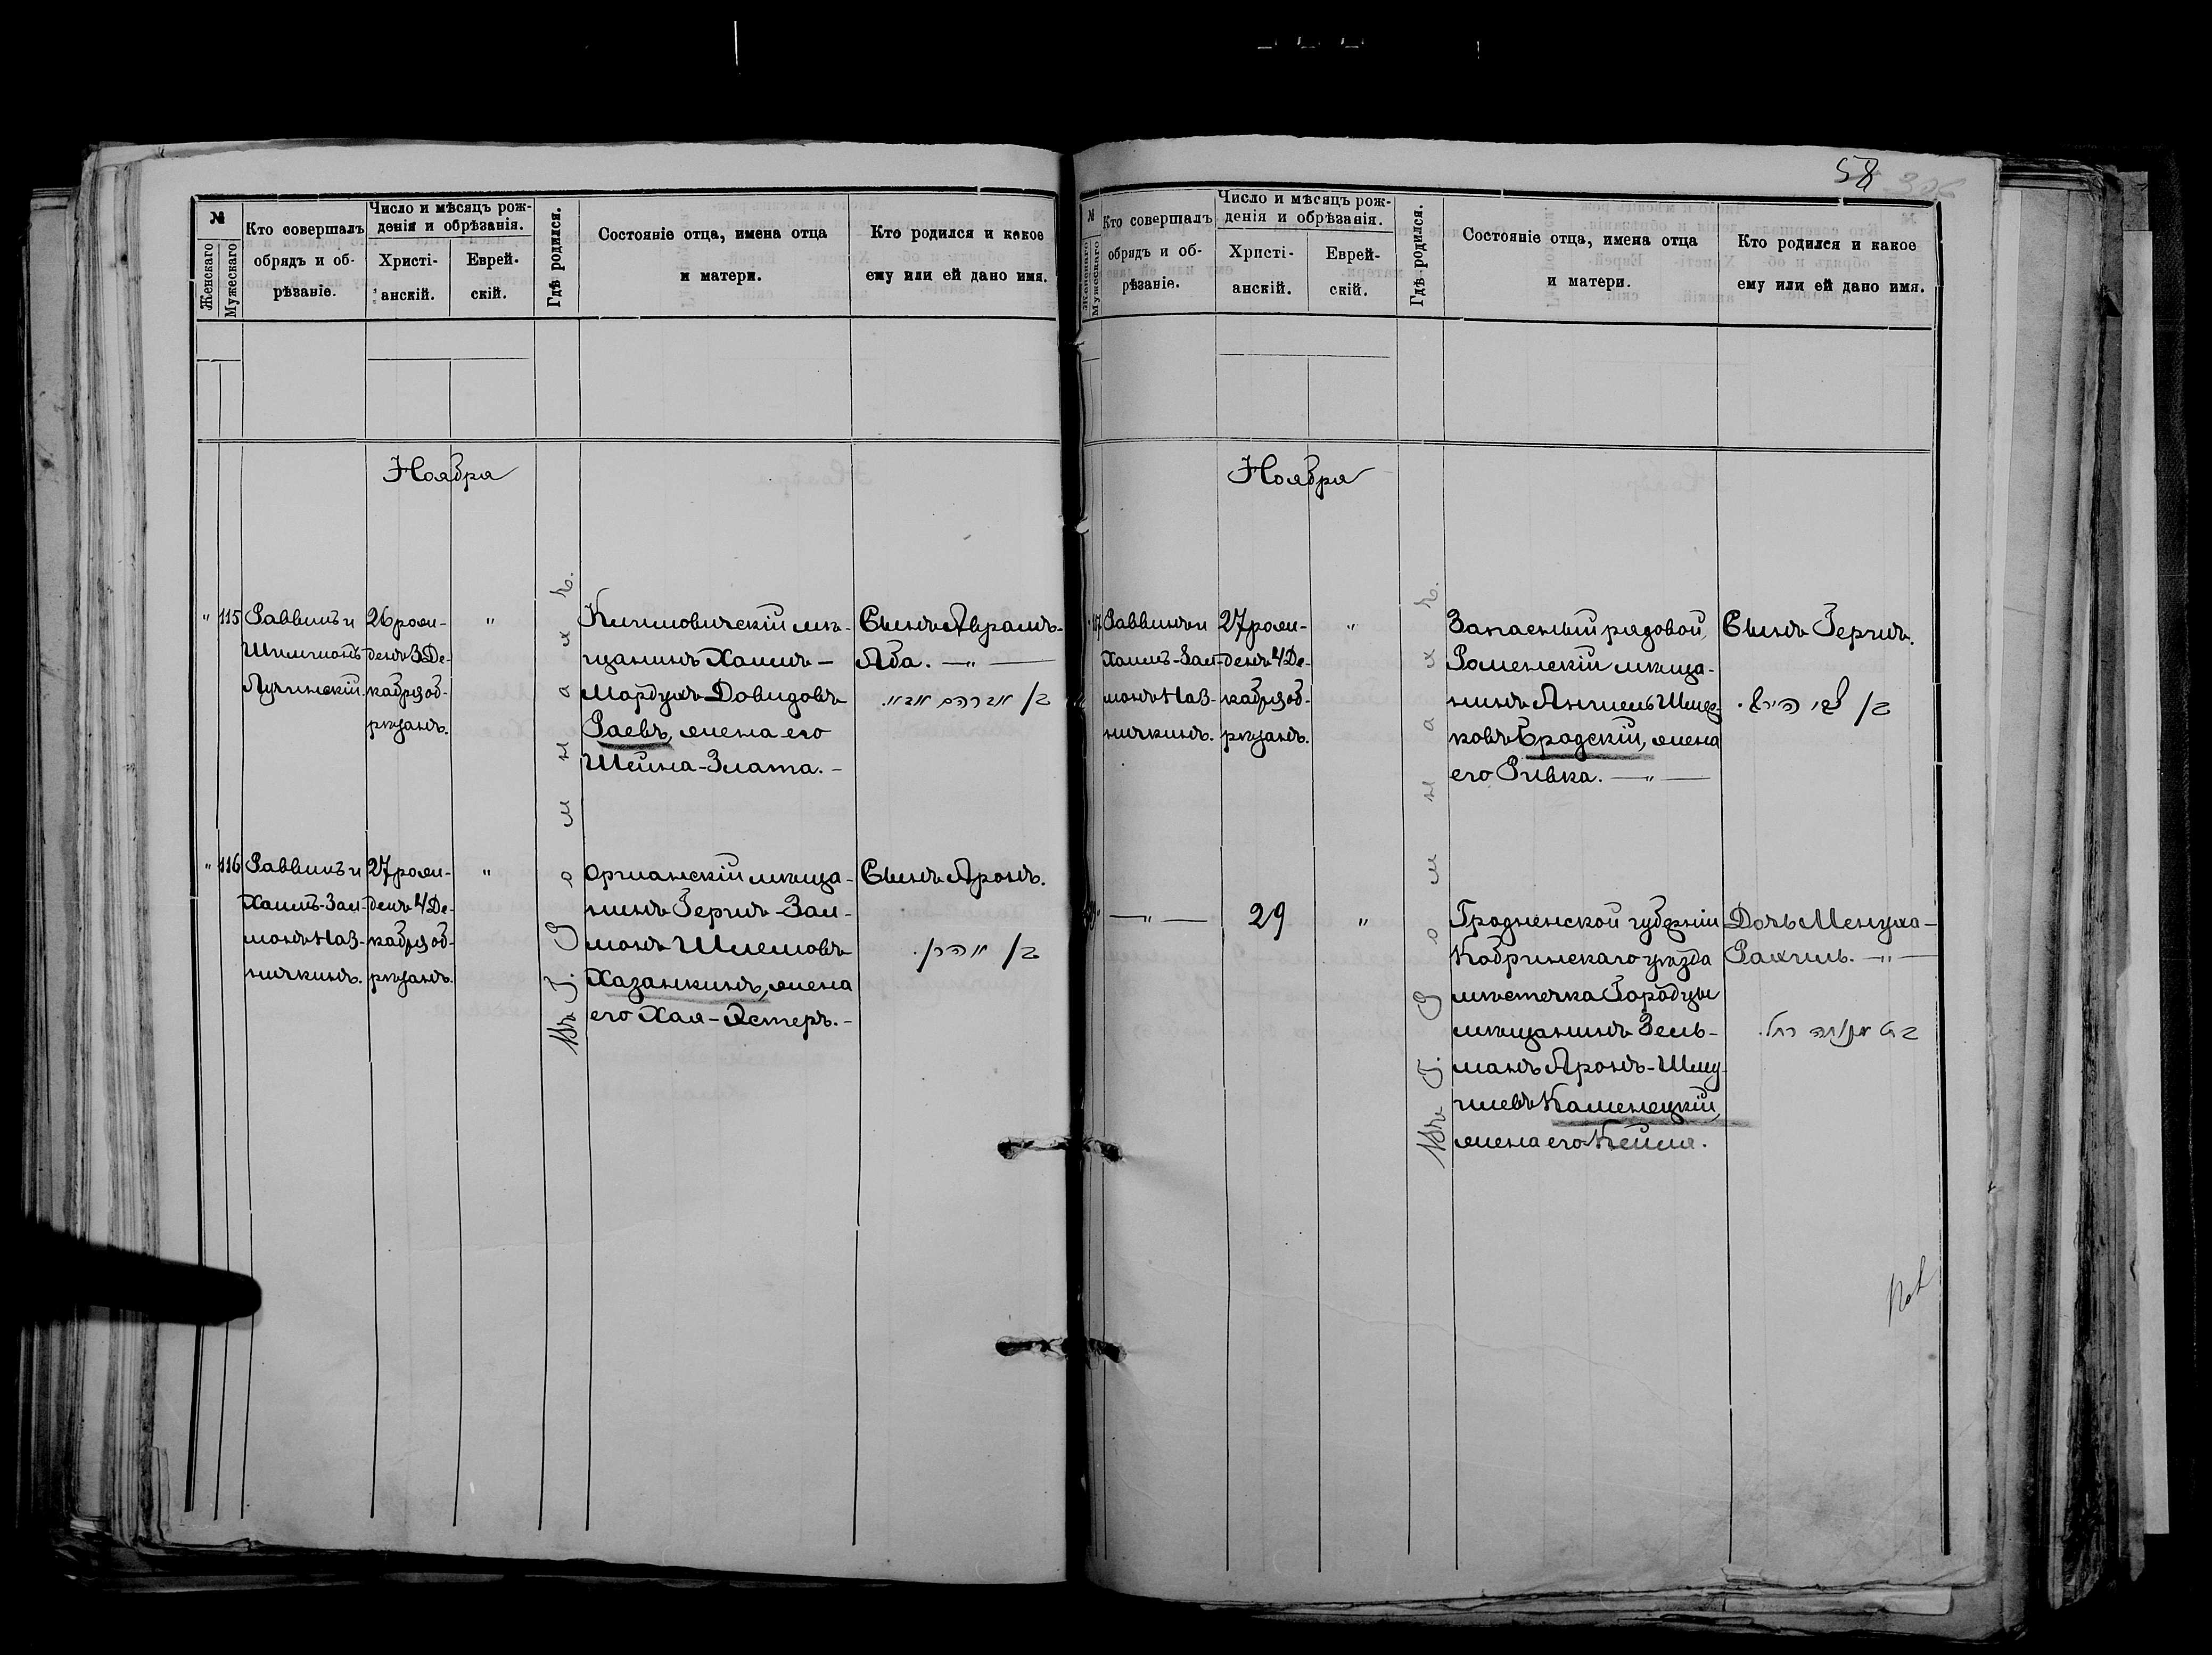 58
№
Женскаго
Мужескаго
Кто совершалъ
обрядъ и об-
рѣзаніе.
Число и мѣсяцъ рож-
денія и обрѣзанія.
Христі-
анскій.
Еврей-
скій.
Гдѣ родился.
Состояніе отца, имена отца
и матери.
Кто родился и какое
ему или ей дано имя.
Ноября
" 115
Раввинъ и
Шлиомонъ
Лучинскій.
26 рож-
денъ 3 Де-
кабря об-
рѣзанъ.
"
Въ Г. Ромнахъ.
Климовичскій мѣ-
щанинъ Хаимъ-
Мордухъ Довидовъ
Раевъ, жена его
Шейна-Злата. -
Сынъ Аврамъ-
Аба. — " —
בן אברהם אבא.
" 116
Раввинъ и
Хаимъ-Зал-
монъ Наз-
ничкинъ.
27 рож-
денъ 4 Де-
кабря об-
рѣзанъ.
"
Оршанскій мѣща-
нинъ Гершъ-Зал-
монъ Шлемовъ
Хазанкинъ, жена
его Хая-Эстеръ. -
Сынъ Аронъ.
בן אהרן.
№
Женскаго
Мужескаго
Кто совершалъ
обрядъ и об-
рѣзаніе.
Число и мѣсяцъ рож-
денія и обрѣзанія.
Христі-
анскій.
Еврей-
скій.
Гдѣ родился.
Состояніе отца, имена отца
и матери.
Кто родился и какое
ему или ей дано имя.
Ноября
Раввинъ и
Хаимъ-Зал-
монъ Наз-
ничкинъ.
27 рож-
денъ 4 Де-
кабря об-
рѣзанъ.
"
Въ Г. Ромнахъ.
Запасный рядовой,
Роменскій мѣща-
нинъ Аншель
Бродскій, жена
его Ривка. — " —
Сынъ Гершъ.
בן צבי הירש.
— " —
29
"
Гродненской губерніи
Кобринскаго уѣзда
мѣстечка Городцы
мѣщанинъ Зель-
манъ Аронъ-Шму-
илевъ Каменецкій,
жена его Кейля.
Дочь Менуха-
Рахиль. — " —
בת מנוחה רחל.